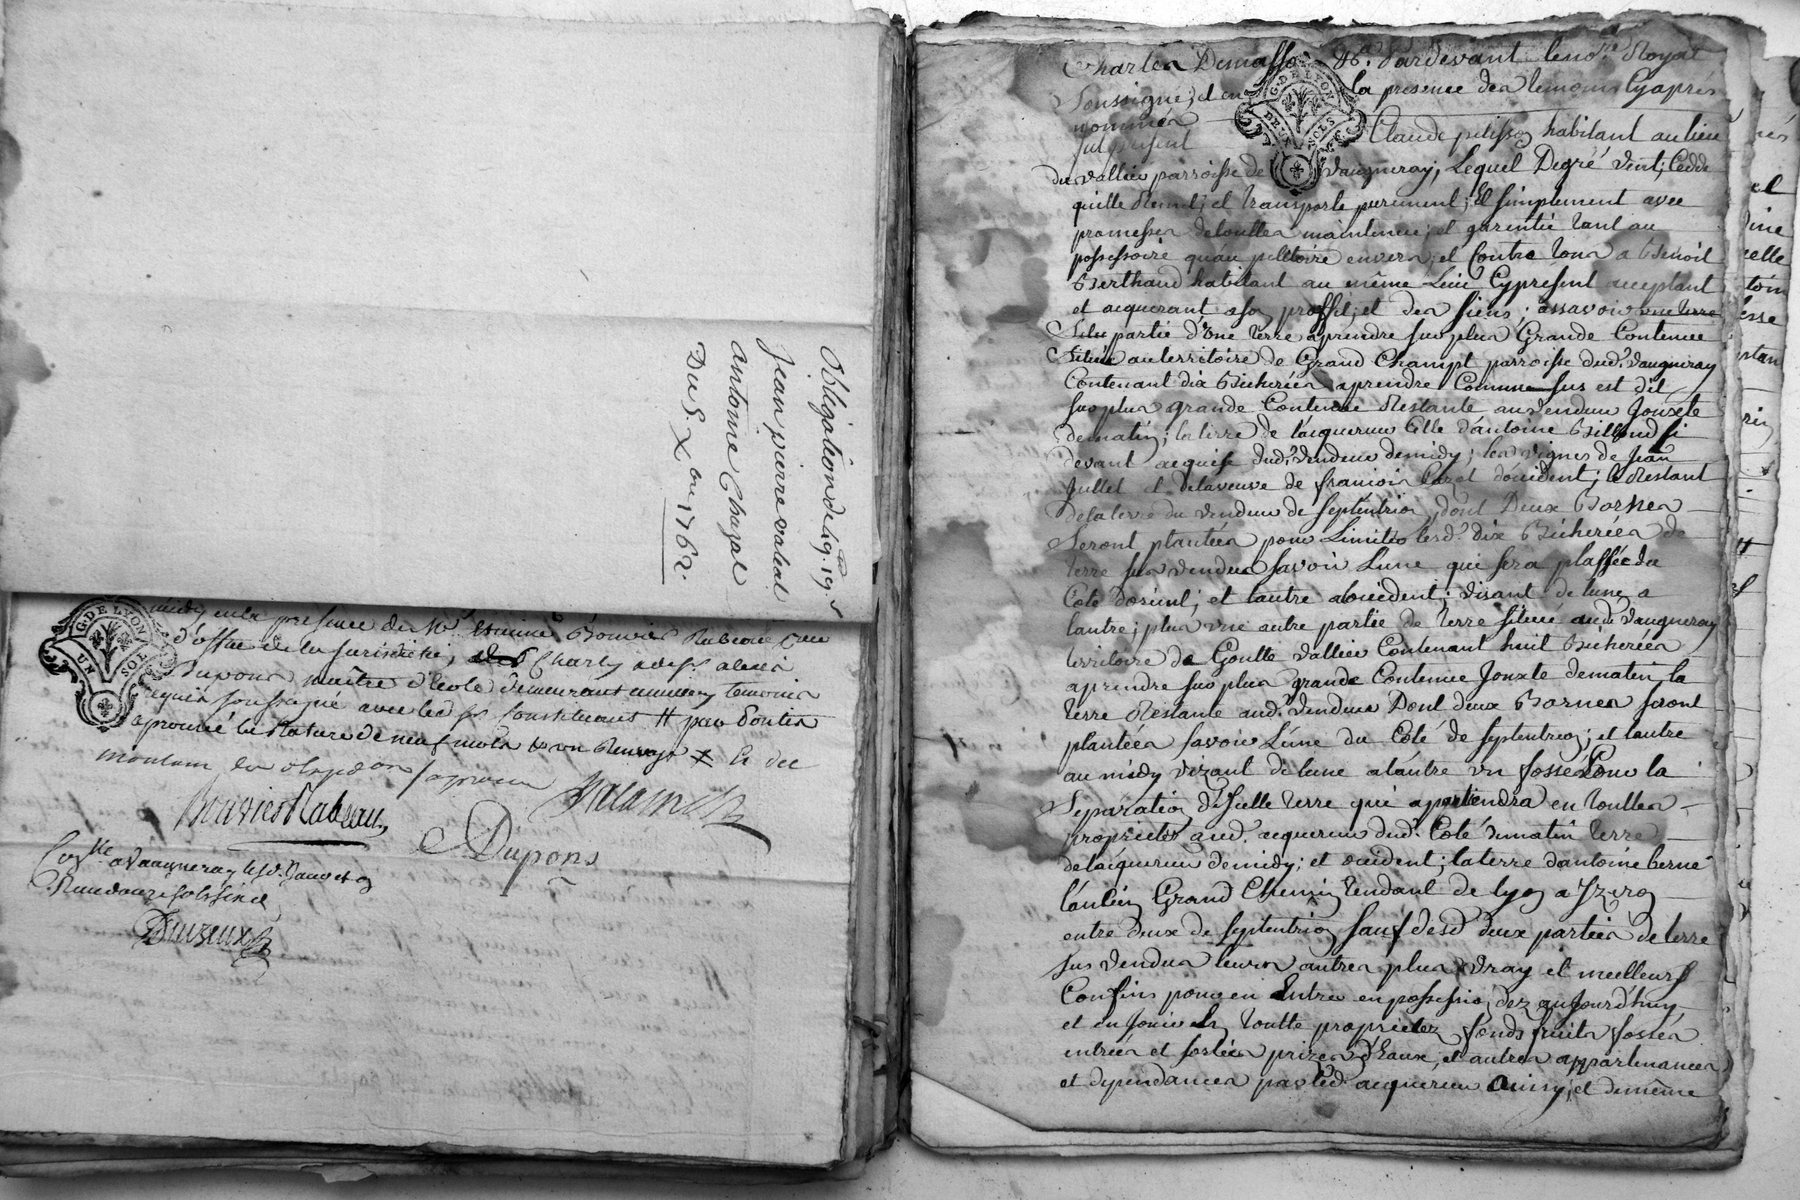 Obligation de 19.lt 19.s
Jean pierre valeal
antoine Chazal
Du 5 Xbre 1762.
G. DE LYON
UN SOL
midy en la presence de Mr Bouvier Rabeau
d'office de la jurisdiction, Charly
Dupons maître d'école demeurant temoins
requis soussigné avec les constituants # par
aprouvé la rature de neuf mots & un Renvoy # Le dit
Bouvier Rabeau
Dupons
a Vaugneray le
Charles Par devant le no.re Royal
soussigné, et en la presence des temoins Cyaprés
nommés
G. DE LYON
DEUX SOLS
fut present Claude pelisson habitant au lieu
du vallier parroisse de vaugneray; Lequel Degré vent, Cedde
quitte Remet, et transporte purement; Et simplement avec
promesses de touttes maintenue; et garentie tant au
possessoire qu'au petitoire envers, et Contre tous a Benoit
Berthaud habitant au même Lieu Cypresent acceptant
et acquerant a son proffit, et des siens; assavoir une terre
partie d'une terre aprendre sus plus Grande Contenue
situé au territoire de Grand Champt parroisse dud. vaugneray
Contenant dix Bicherées aprendre Comme sus est dit
sus plus grande Contenue Restante au vendeur Jouxte
de matin; la terre de l'acquereur Celle d'antoine Billoud ci
devant acquise dud. vendeur de midy; les vignes de Jean
Jullet et de la veuve de francois Cazot d'occident; le Restant
de la terre du vendeur de septentrion, dont Deux Bornes
seront plantées pour Limiter lesd. dix Bicherées de
terre sus vendues savoir L'une qui sera plassée du
Coté d'orient; et l'autre a loccident; visant de lune a
lautre; plus une autre partie de terre située aud. vaugneray
territoire de Goutte vallier Contenant huit Bicherées
aprendre sus plus grande Contenue Jouxte de matin la
terre Restante aud. vendeur Dont deux Bornes seront
plantées savoir L'une du Coté de septentrion; et l'autre
au midy vizant de lune a l'autre un fossé pour la
separation d'icelle terre qui apartiendra en touttes
proprietés aud. acquereur dud. Coté de matin terre
de lacquereur de midy; et occident; la terre d'antoine berne
l'ancien Grand Chemin tendant de lyon a Izeron
entre deux de septentrion sauf desd. deux parties de terre
sus vendues leurs autres plus vray et meilleurs
Confins pour en Entrer en possession dez aujourd'huy
et en Jouir En toutte proprietez fonds fruits fossés
entrées et sorties prizes d'Eaux, et autres appartenances
et dependances par led. acquereur ainsy, et de même